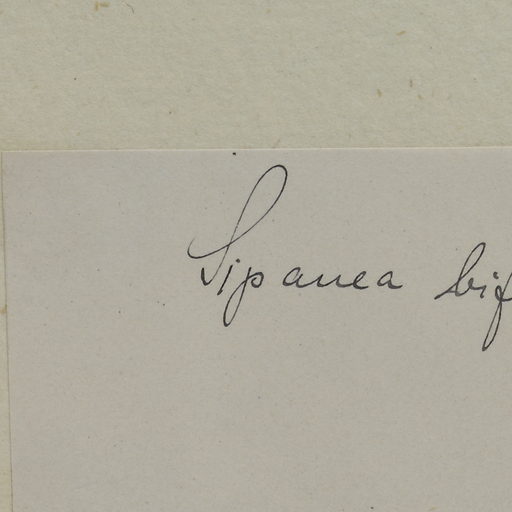 Sipanea bif